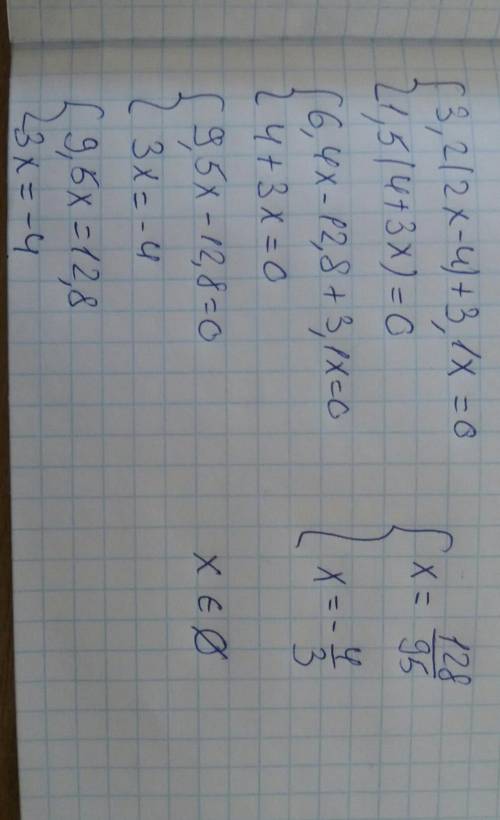 { 3,2(2x-4)+3,1x=0
{ 1,5(4+3x)=0
{ 6,4x-12,8+3,1x=0
{ 4+3x=0
{ 9,5x-12,8=0
{ 3x=-4
{ 9,5x=12,8
{ 3x=-4
{ x=128/95
{ x=-4/3
x∈∅